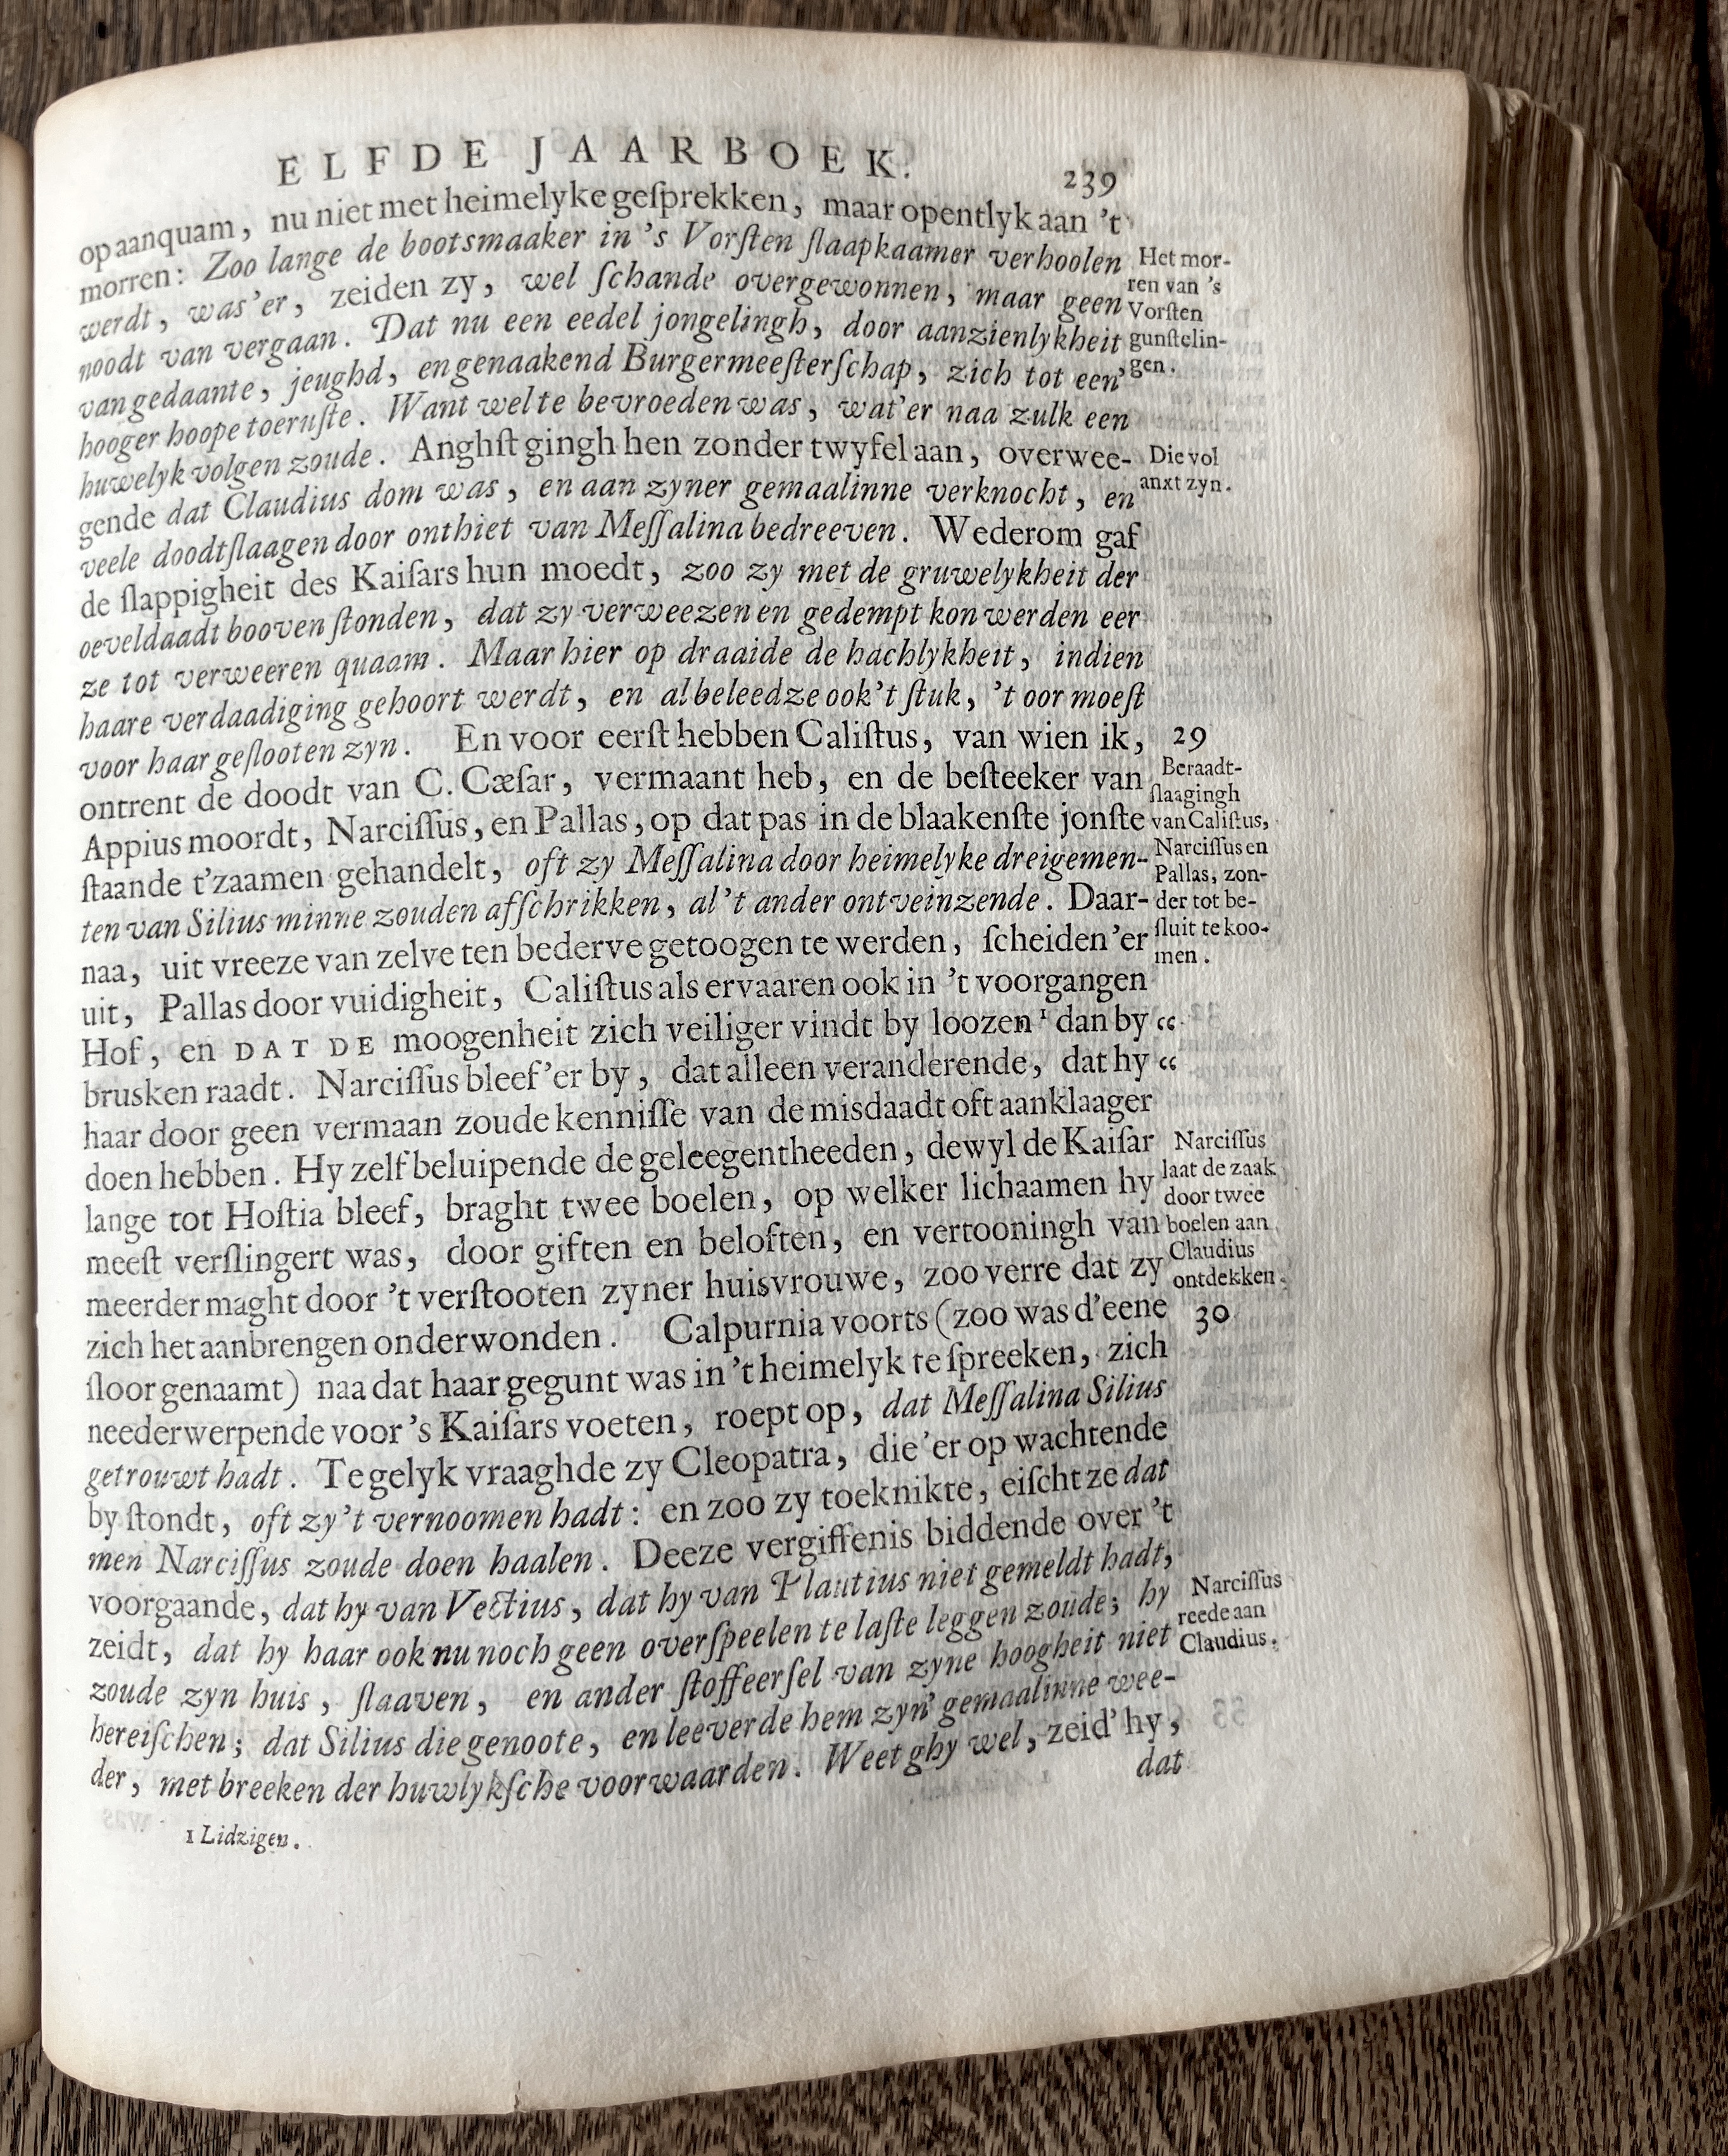 ELFDE JAARBOEK. 239
op aanquam, nu niet met heimelyke geſprekken, maar opentlyk aan 't
morren: Zoo lange de bootsmaaker in 's Vorſten ſlaapkaamer verhoolen
werdt, was'er, zeiden zy, wel ſchande overgewonnen, maar geen
noodt van vergaan. Dat nu een eedel jongelingh, door aanzienlykheit
van gedaante, jeughd, en genaakend Burgermeeſterſchap, zich tot een'
hooger hoope toeruſte. Want wel te bevroeden was, wat'er naa zulk een
huwelyk volgen zoude. Anghſt gingh hen zonder twyfel aan, overwee-
gende dat Claudius dom was, en aan zyner gemaalinne verknocht, en
veele doodtſlaagen door onthiet van Meſſalina bedreeven. Wederom gaf
de ſlappigheit des Kaiſars hun moedt, zoo zy met de gruwelykheit der
oeveldaadt booven ſtonden, dat zy verweezen en gedempt kon werden eer
ze tot verweeren quaam. Maar hier op draaide de hachlykheit, indien
haare verdaadiging gehoort werdt, en al beleedze ook 't ſtuk, 't oor moeſt
voor haar geſlooten zyn. En voor eerſt hebben Caliſtus, van wien ik,
ontrent de doodt van C. Cæſar, vermaant heb, en de beſteeker van
Appius moordt, Narciſſus, en Pallas, op dat pas in de blaakenſte jonſte
ſtaande t'zaamen gehandelt, oft zy Meſſalina door heimelyke dreigemen-
ten van Silius minne zouden afſchrikken, al 't ander ontveinzende. Daar-
naa, uit vreeze van zelve ten bederve getoogen te werden, ſcheiden'er
uit, Pallas door vuidigheit, Caliſtus als ervaaren ook in 't voorgangen
Hof, en DAT DE moogenheit zich veiliger vindt by loozen ¹ dan by “
brusken raadt. Narciſſus bleef'er by, dat alleen veranderende, dat hy “
haar door geen vermaan zoude kenniſſe van de misdaadt oft aanklaager
doen hebben. Hy zelf beluipende de geleegentheeden, dewyl de Kaiſar
lange tot Hoſtia bleef, braght twee boelen, op welker lichaamen hy
meeſt verſlingert was, door giften en beloften, en vertooningh van
meerder maght door 't verſtooten zyner huisvrouwe, zoo verre dat zy
zich het aanbrengen onderwonden. Calpurnia voorts (zoo was d'eene
ſloor genaamt) naa dat haar gegunt was in 't heimelyk te ſpreeken, zich
neederwerpende voor 's Kaiſars voeten, roept op, dat Meſſalina Silius
getrouwt hadt. Te gelyk vraaghde zy Cleopatra, die'er op wachtende
by ſtondt, oft zy 't vernoomen hadt: en zoo zy toeknikte, eiſcht ze dat
men Narciſſus zoude doen haalen. Deeze vergiffenis biddende over 't
voorgaande, dat hy van Vectius, dat hy van Plautius niet gemeldt hadt,
zeidt, dat hy haar ook nu noch geen overſpeelen te laſte leggen zoude; hy
zoude zyn huis, ſlaaven, en ander ſtoffeerſel van zyne hoogheit niet
hereiſchen; dat Silius die genoote, en leeverde hem zyn' gemaalinne wee-
der, met breeken der huwlykſche voorwaarden. Weet ghy wel, zeid' hy,
dat
1 Lidzigen.
Het mor-
ren van 's
Vorſten
gunſtelin-
gen.
Die vol
anxt zyn.
29
Beraadt-
ſlaagingh
van Caliſtus,
Narciſſus en
Pallas, zon-
der tot be-
ſluit te koo-
men.
Narciſſus
laat de zaak
door twee
boelen aan
Claudius
ontdekken.
30
Narciſſus
reede aan
Claudius.